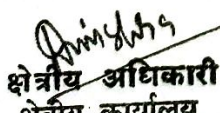 क्षेत्रीय अधिकारी
क्षेत्रीय कार्यालय